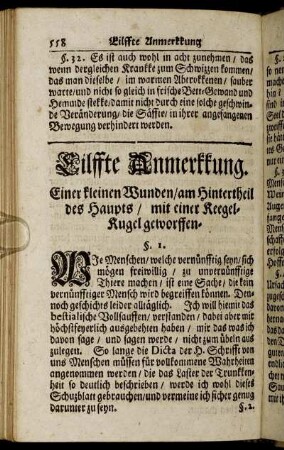 558 Eilffte Anmerkkung
§. 32. Es ist auch wohl in acht zunehmen / das
wenn dergleichen Krankke zum Schwizzen kommen /
das man dieselbe / im warmen Abtrokkenen / sauber
warte / und nicht so gleich in frische Bett-Gewand und
Hemde stekke / damit nicht durch eine solche geschwin-
de Veränderung / die Säffte / in ihrer angefangenen
Bewegung verhindert werden.
Eilffte Anmerkkung.
Einer kleinen Wunden / am Hintertheil
des Haupts / mit einer Keegel-
Kugel geworffen.
§. 1.
WIe Menschen / welche vernünfftig seyn / sich
mögen freiwillig / zu unvernünfftige
Thiere machen / ist eine Sache / die kein
vernünfftiger Mensch wird begreiffen können. Den-
noch geschichts leider alltäglich. Ich will hiemit das
bestialische Vollsauffen / verstanden / dabei aber mit
höchstfeyerlich ausgebehten haben / mir das was ich
davon sage / und sagen werde / nicht zum übeln aus
zulegen. So lange die Dicta der H. Schrifft von
uns Menschen müssen für vollkommene Wahrheiten
angenommen werden / die das Laster der Trunken-
heit so deutlich beschrieben / werde ich wohl dieses
Schutzblatt gebrauchen / und vermeine ich sicher genug
darunter zu seyn. §. 2.